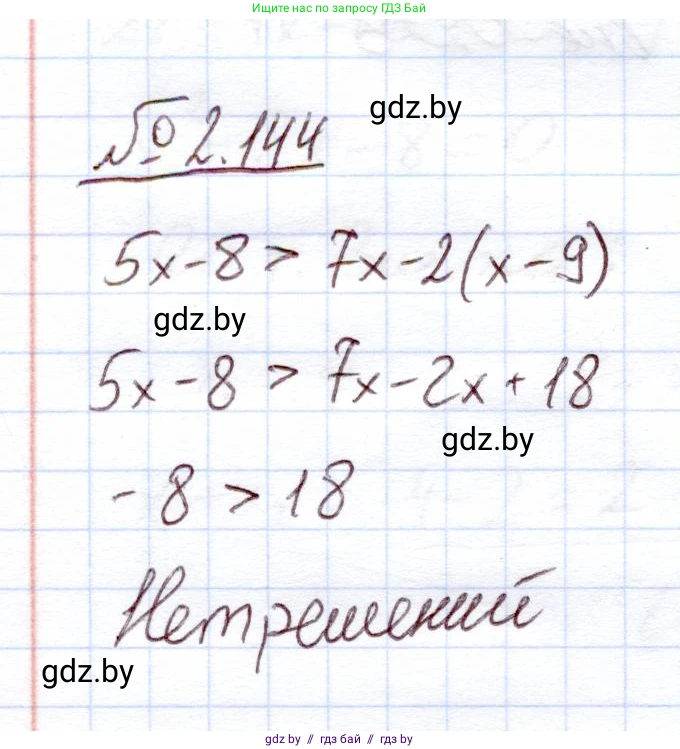 Ищите нас по запросу ГДЗ Бай
gdz.by
№ 2.144
5x-8 > 7x-2(x-9)
gdz.by
5x-8 > 7x-2x+18
gdz.by
-8 > 18
Нет решений
gdz.by
gdz.by // гдз бай // гдз.by